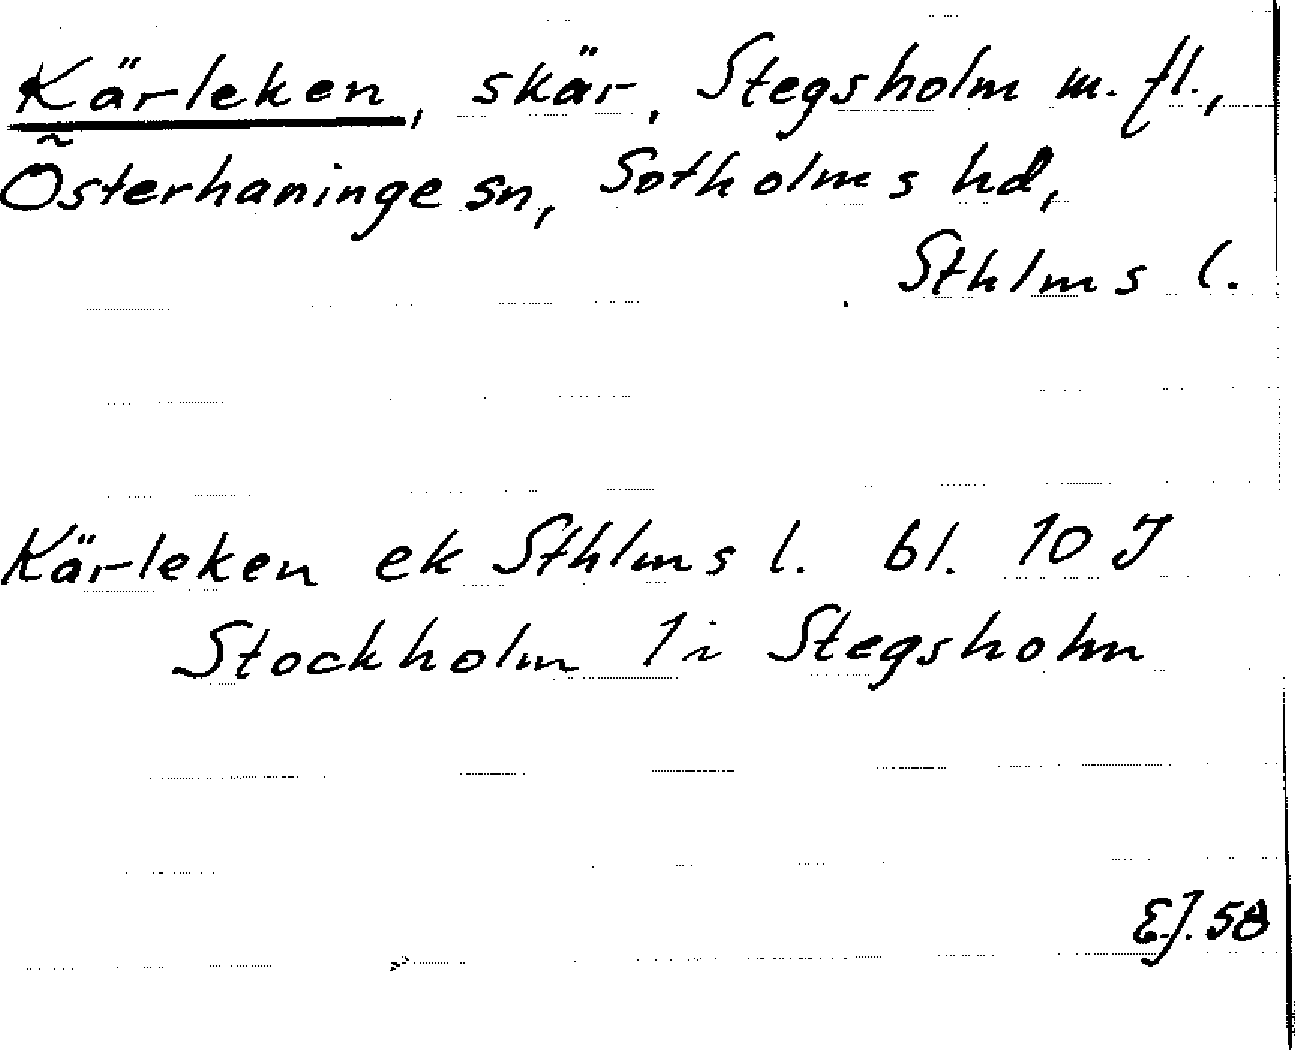 Kärleken, skär, Stegsholm m. fl.,
Österhaninge sn, Sotholms hd,
Sthlms l.
Kärleken ek Sthlms l. bl. 10 J
Stockholm 1i Stegsholm
E.J. 58